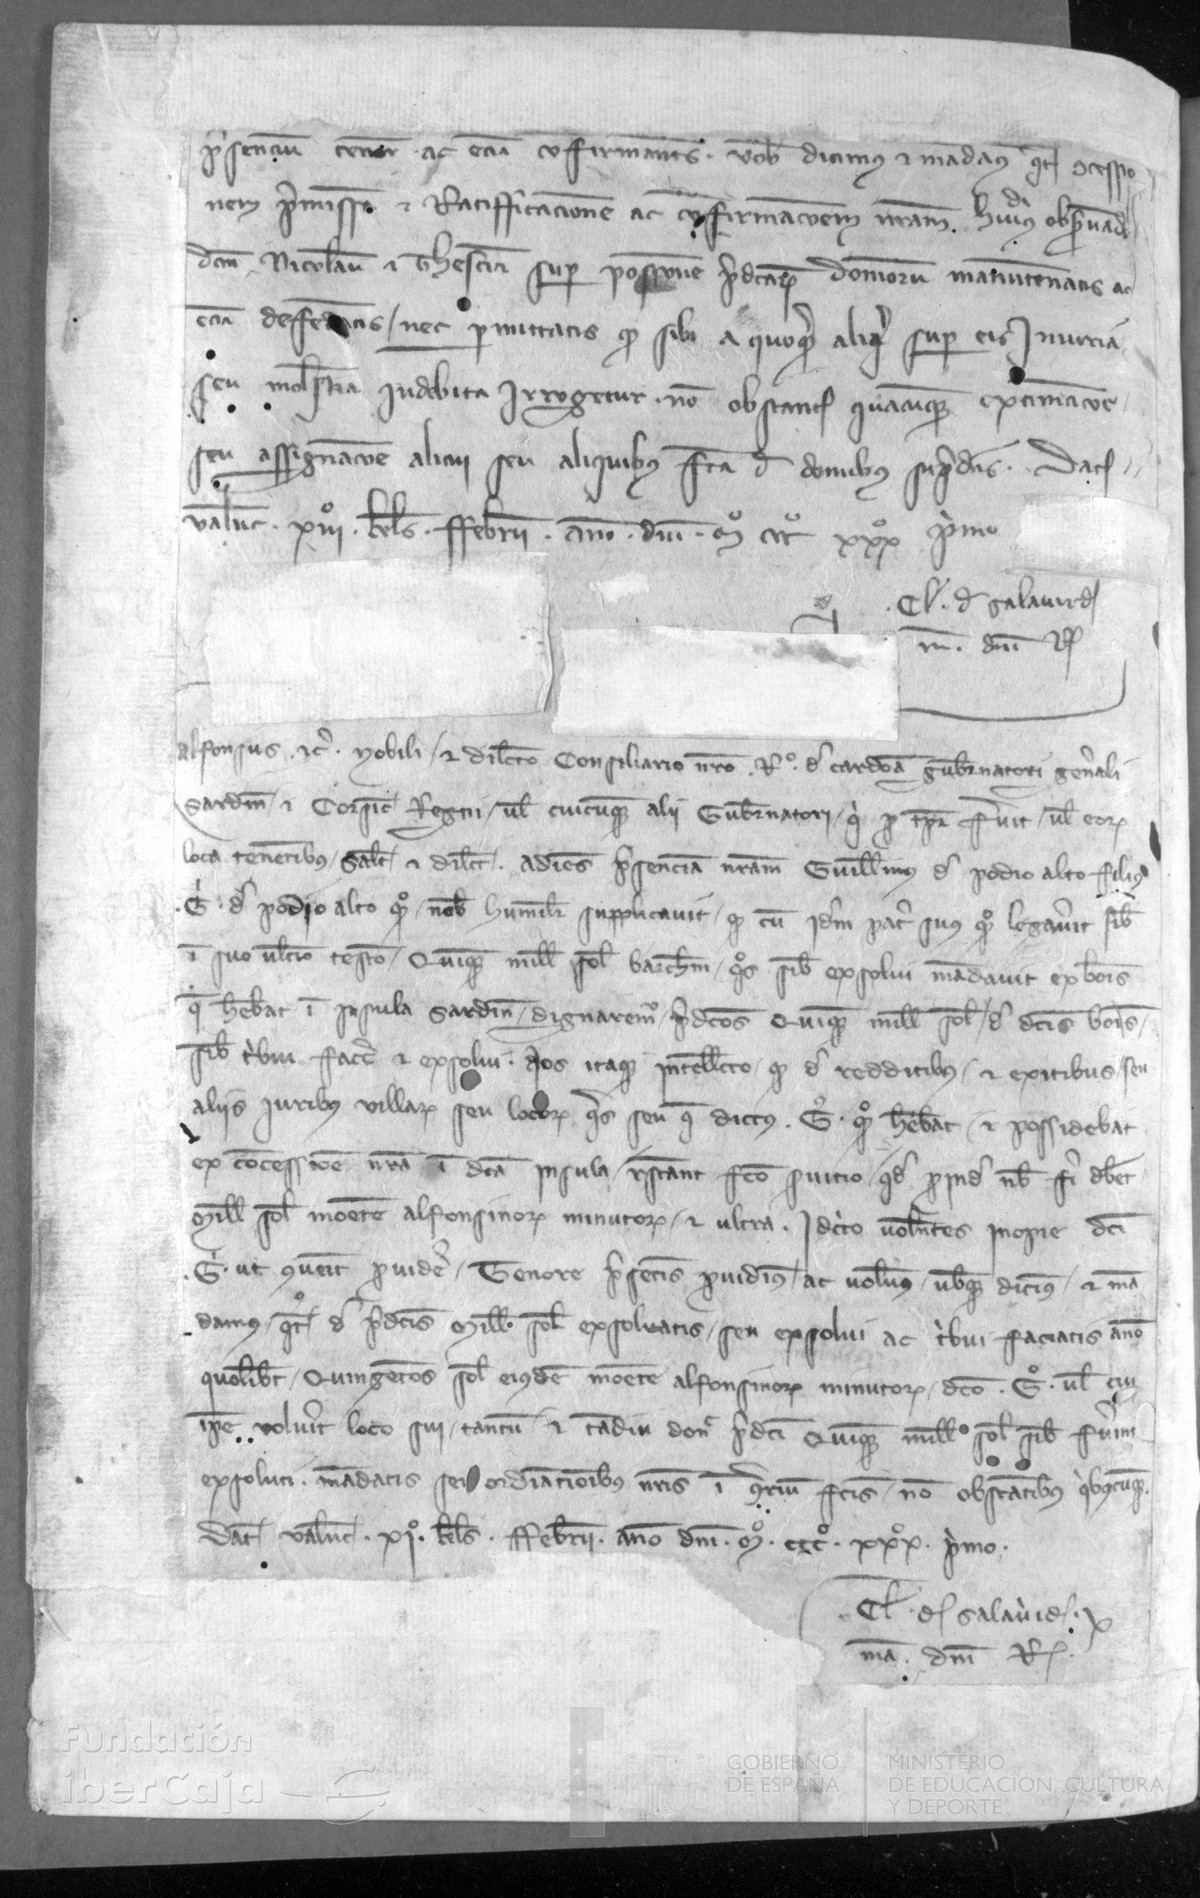 p'senciu tenor . ac ecia cōfirmants . vob dicimus ⁊ mādam' qt ꝯcessio
nem p'missā ⁊ Ratifficacione ac cōfirmacoem nram . hui' obs̄uad
dcm Nicolau ⁊ Thesciā sup possione p'dcaꝝ domorum manutenatis ac
ecia deffedatis / nec pmittatis qꝫ sibi a quoqꝫ aliqꝫ sup eis Iniuria
seu molestia indebita Irrogetur . nō obstante quacuqꝫ extimacōe
seu assignacōe alicui seu aliquibus fcā d' domibus sup'dcis . Dat
valenc . xiiii . kls . ffebrii . ano . dni . mº cccº xxxº p'mo
. Cl' . d' Salauird
m . dni R
alfonsus . ⁊c̄ . Nobili / ⁊ dilcto Consiliario nro . Rº . d' cardona gubernatori gen'ali
Sardin ⁊ Corsic Regni / ul cuicuqꝫ alii Gubernatori / q' p tpr fuit / ul eorꝝ
loca tenetibus / Salt ⁊ dilct . adies p'sencia nram Guillmus d' podio alto filius
. G . d' podio alto qº / nob humilr supplicauit / qꝫ cu idm pat' suus qº legau'it sib
ī suo ultio testo / Quinqꝫ mill sol barchn / qs sib exsolui mādauit ex bois
q hebat ī Insula Sardin / dignarem' p'dcos Quinqꝫ mill sol / d' dcis bois /
sib t'bui fac' ⁊ exsolui . Nos itaqꝫ intellecto / qꝫ d' redditibus / ⁊ exitibus / seu
aliis iuribus villarꝝ seu locorꝝ qs seu q dictus . G . qº hebat / ⁊ possidebat
ex cocessioe nra ī dca Insula / rstant fco suicio / qd pind nb fi dbet
Mill sol monete alfonsinorꝝ minutorꝝ / ⁊ ultra . Idcirco uolentes inopie dci
. G . ut ꝯueit puide' / Tenore p'setis puidim' ac uolum' / ubqꝫ dicim' / ⁊ mā
damus / qt d' p'dcis Mill sol exsoluatis / seu exsolui ac t'bui faciatis ano
quolibt / Quingetos sol eiusde monete alfonsinorꝝ minutorꝝ / dco . G . ul cui
ipe volu'it loco sui / tantu ⁊ tadiu donc p'dci Quinqꝫ mill sol sib fu'int
exsoluti . mādatis seu ordiacioibus nris ī ꝯ'riu fcis / no obstatibus q'buscuqꝫ .
Dat valenc . xi . kls . ffebrii . ano dni . mº . cccº . xxxº . p'mo .
. Cl . d' Salauid . ex
ma . dni R .
Fundación
iberCaja
GOBIERNO
DE ESPAÑA
MINISTERIO
DE EDUCACIÓN, CULTURA
Y DEPORTE